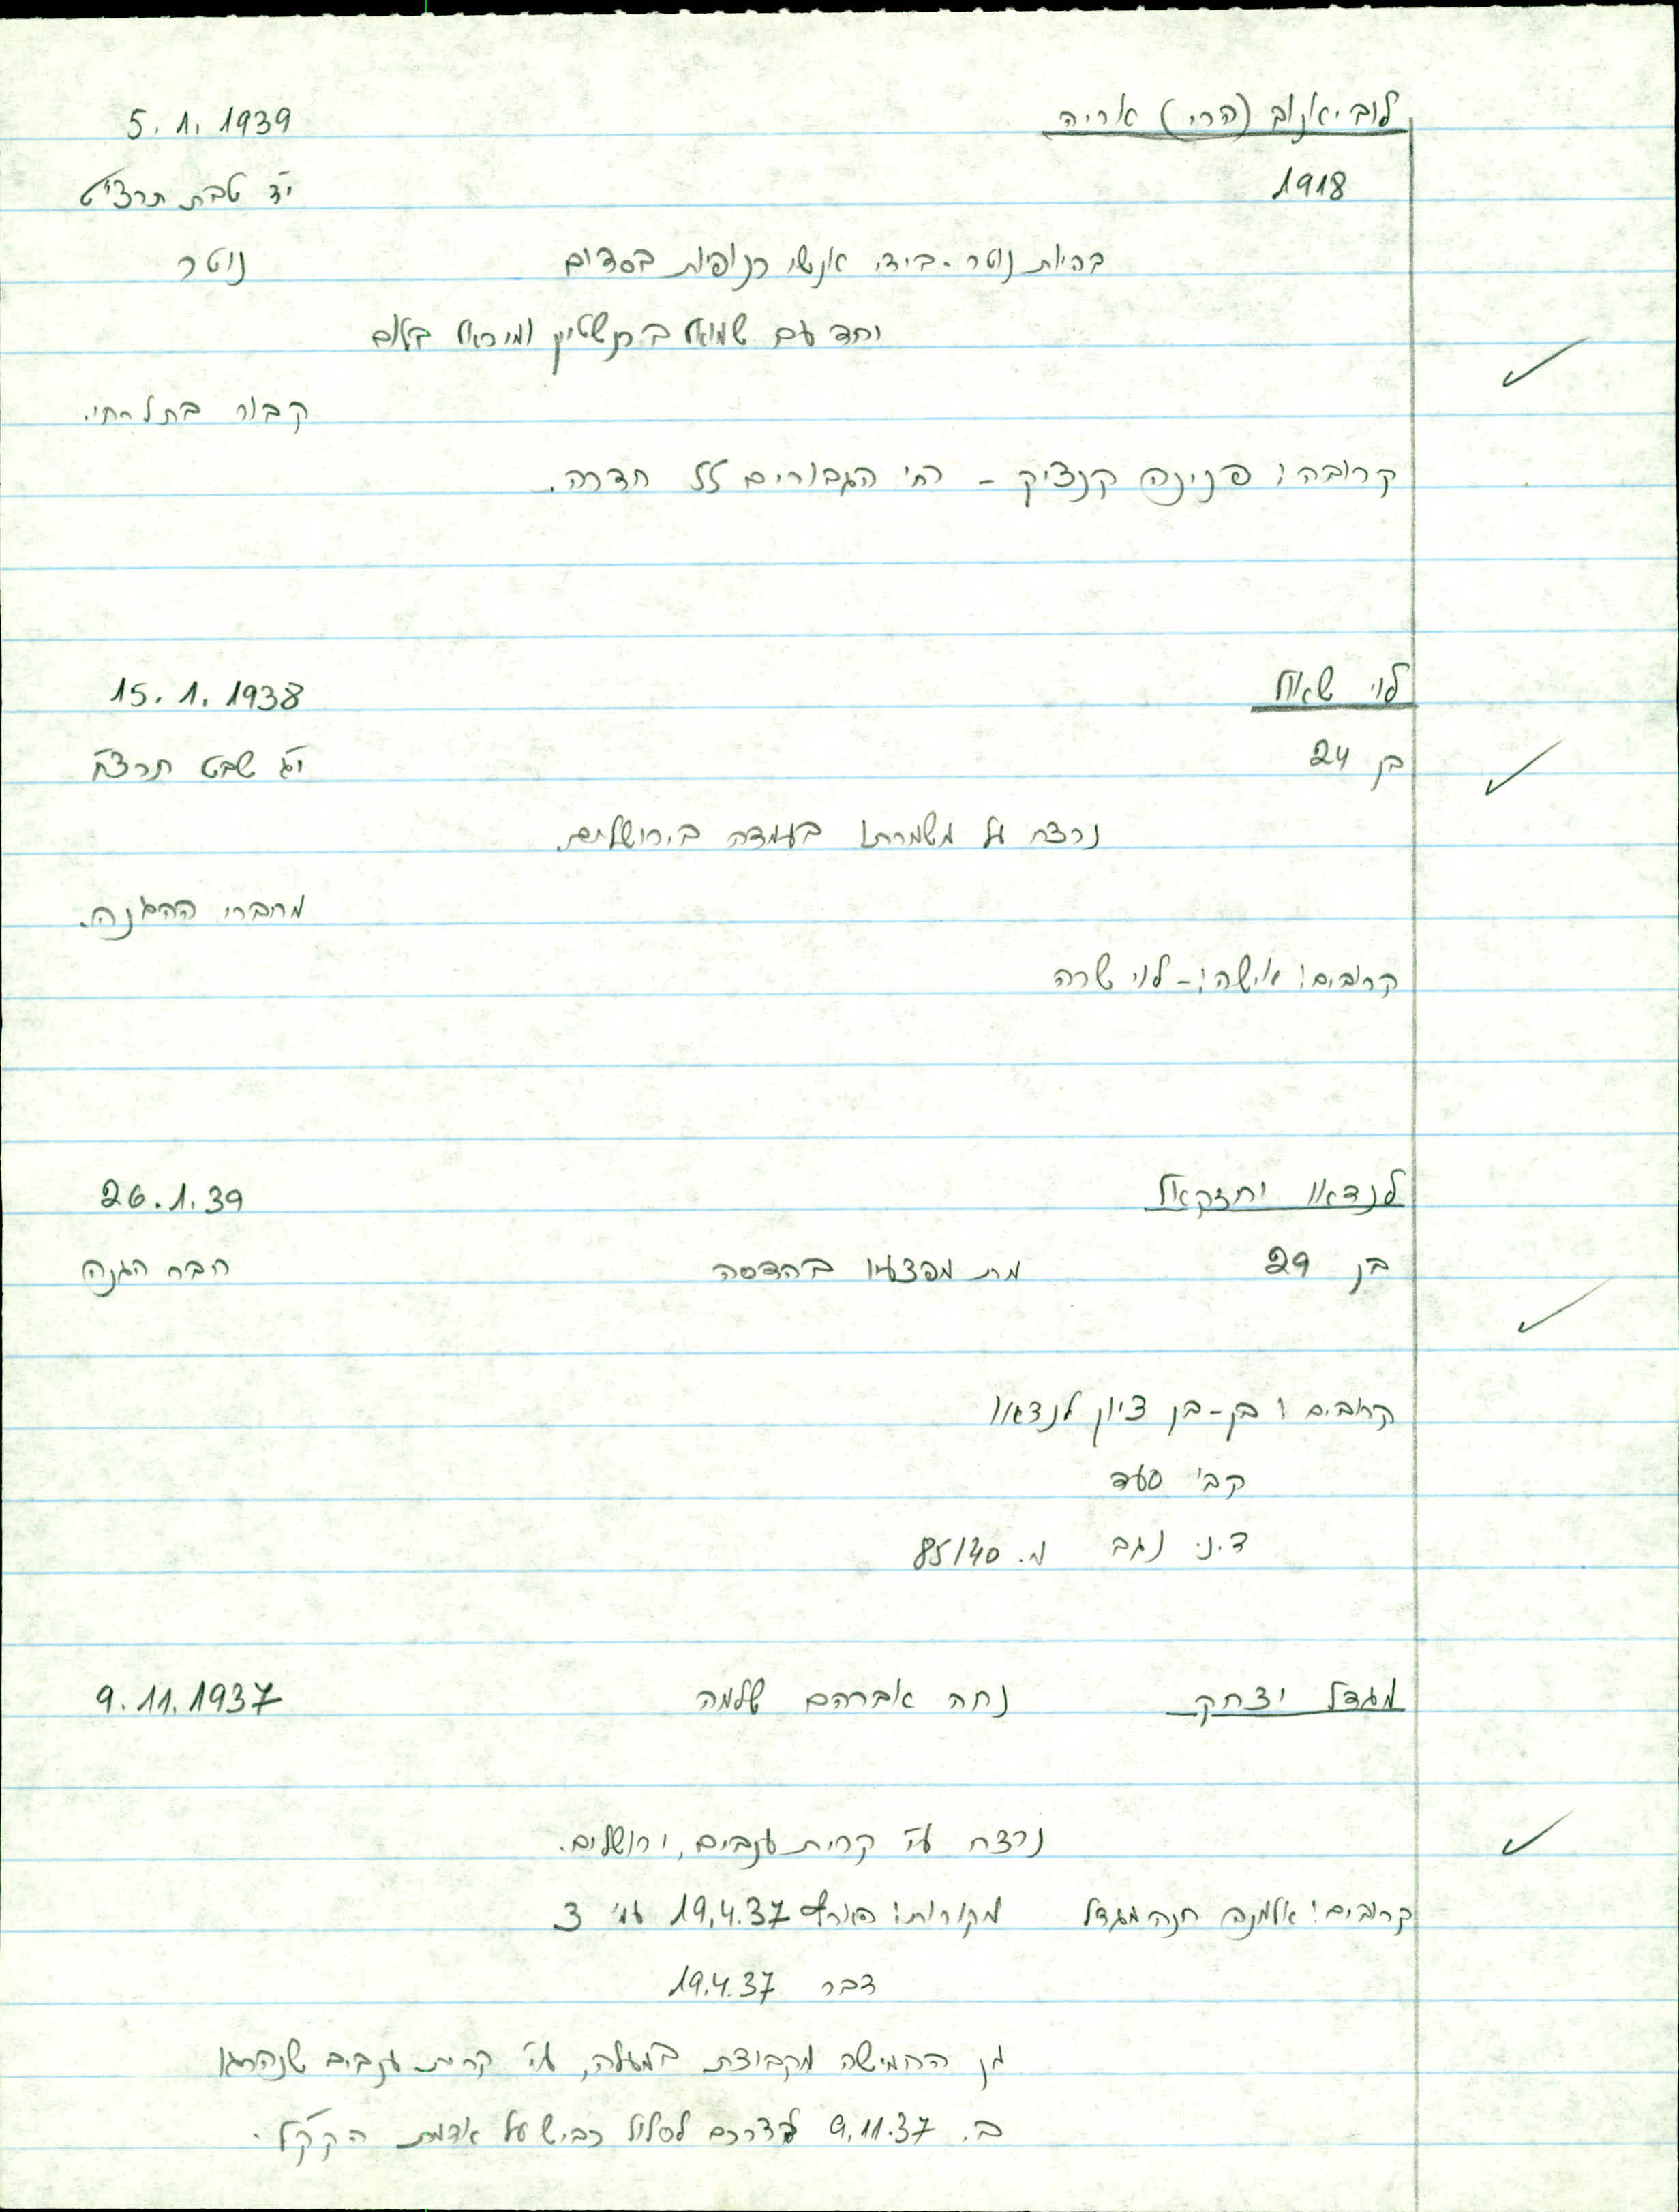 לוביאנוב (הרי) אריה 5.1.1939
1918 י"ד טבת תרצ"ט
בהיות נוטר - בידי אנשי כנופיות בסדום נוטר
יחד עם שמואל ברנשטיין ומיכאל בלום
קבור בתל-חי.
קרובה: פנינה קנציק - רח' הגבורים חדרה.
לוי שאול 15.1.1938
בן 24 י"ג שבט תרצ"ח
נרצח על משמרתו בעמדה בירושלים.
מחברי ההגנה.
קרובים: אישה: - לוי שרה
לנדאו יחזקאל 26.1.39
בן 29 מת מפצעיו בהדסה חבר הגנה
קרובים: בן - בן ציון לנדאו
קב' סעד
ד.נ. נגב מ. 85140
מגדל יצחק נחה אברהם שלמה 9.11.1937
נרצח ע"י קרית ענבים, ירושלים.
קרובים: אלמנה חנה מגדל מקורות: הארץ 19.4.37 עמ' 3
דבר 19.4.37
מן החמישה מקבוצת במעלה, ע"י קרית ענבים שנהרגו
ב. 9.11.37 בדרכם לסלול כביש על אדמת הקק"ל.